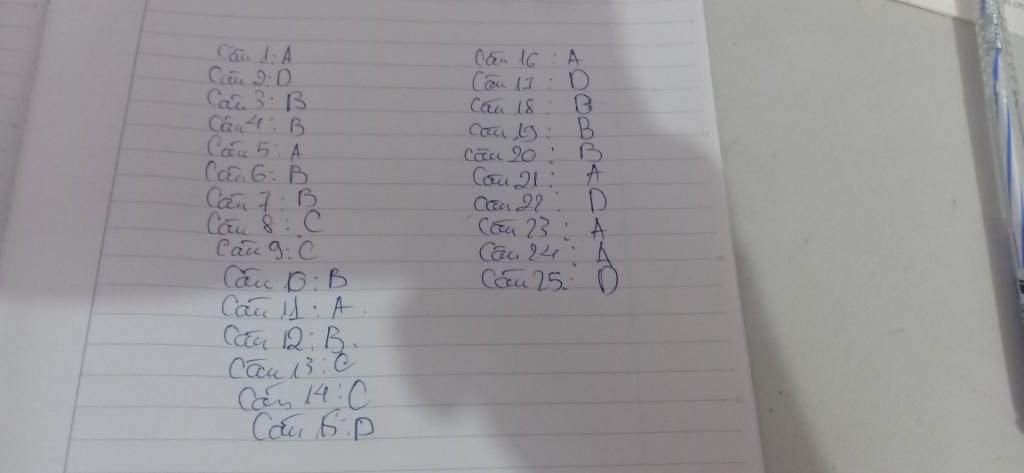 Câu 1: A
Câu 2: D
Câu 3: B
Câu 4: B
Câu 5: A
Câu 6: B
Câu 7: B
Câu 8: C
Câu 9: C
Câu 10: B
Câu 11: A.
Câu 12: B.
Câu 13: C
Câu 14: C
Câu 15: D
Câu 16: A
Câu 17: D
Câu 18: B
Câu 19: B
Câu 20: B
Câu 21: A
Câu 22: D
Câu 23: A
Câu 24: A
Câu 25: D